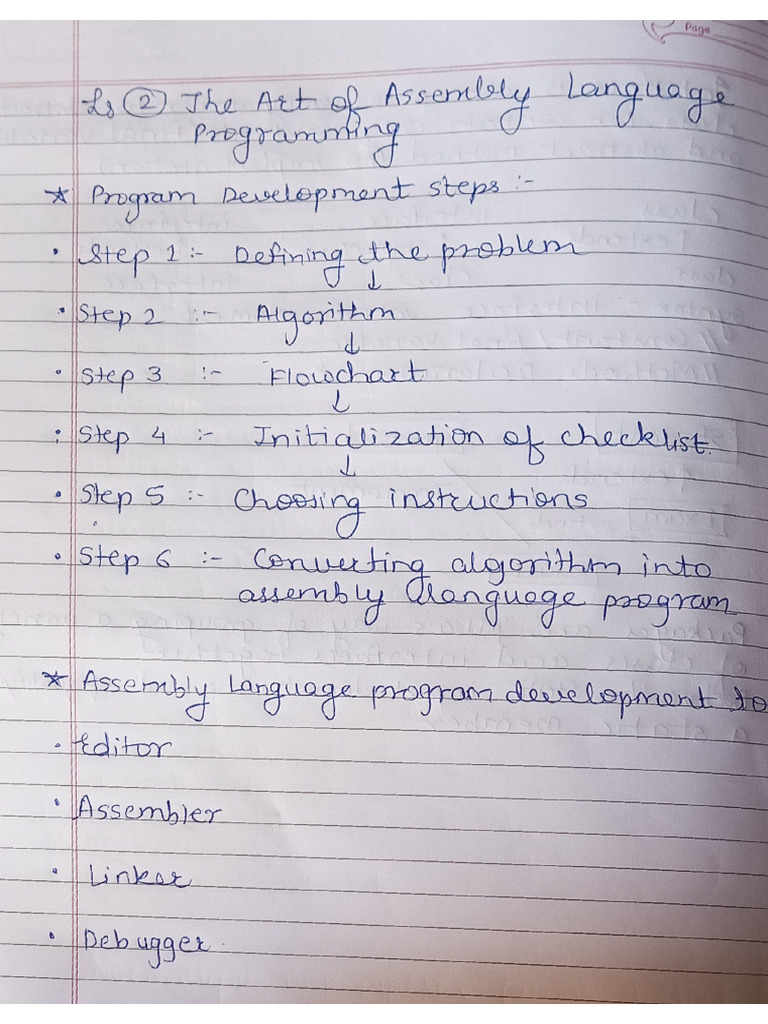 Page
Ls ② The Art of Assembly Language
Programming
* Program Development steps :-
• Step 1 :- Defining the problem
↓
• Step 2 :- Algorithm
↓
• Step 3 :- Flowchart
↓
• Step 4 :- Initialization of checklist.
↓
• Step 5 :- Choosing instructions
• Step 6 :- Converting algorithm into
assembly language program
* Assembly language program development to
• Editor
• Assembler
• Linker
• Debugger.